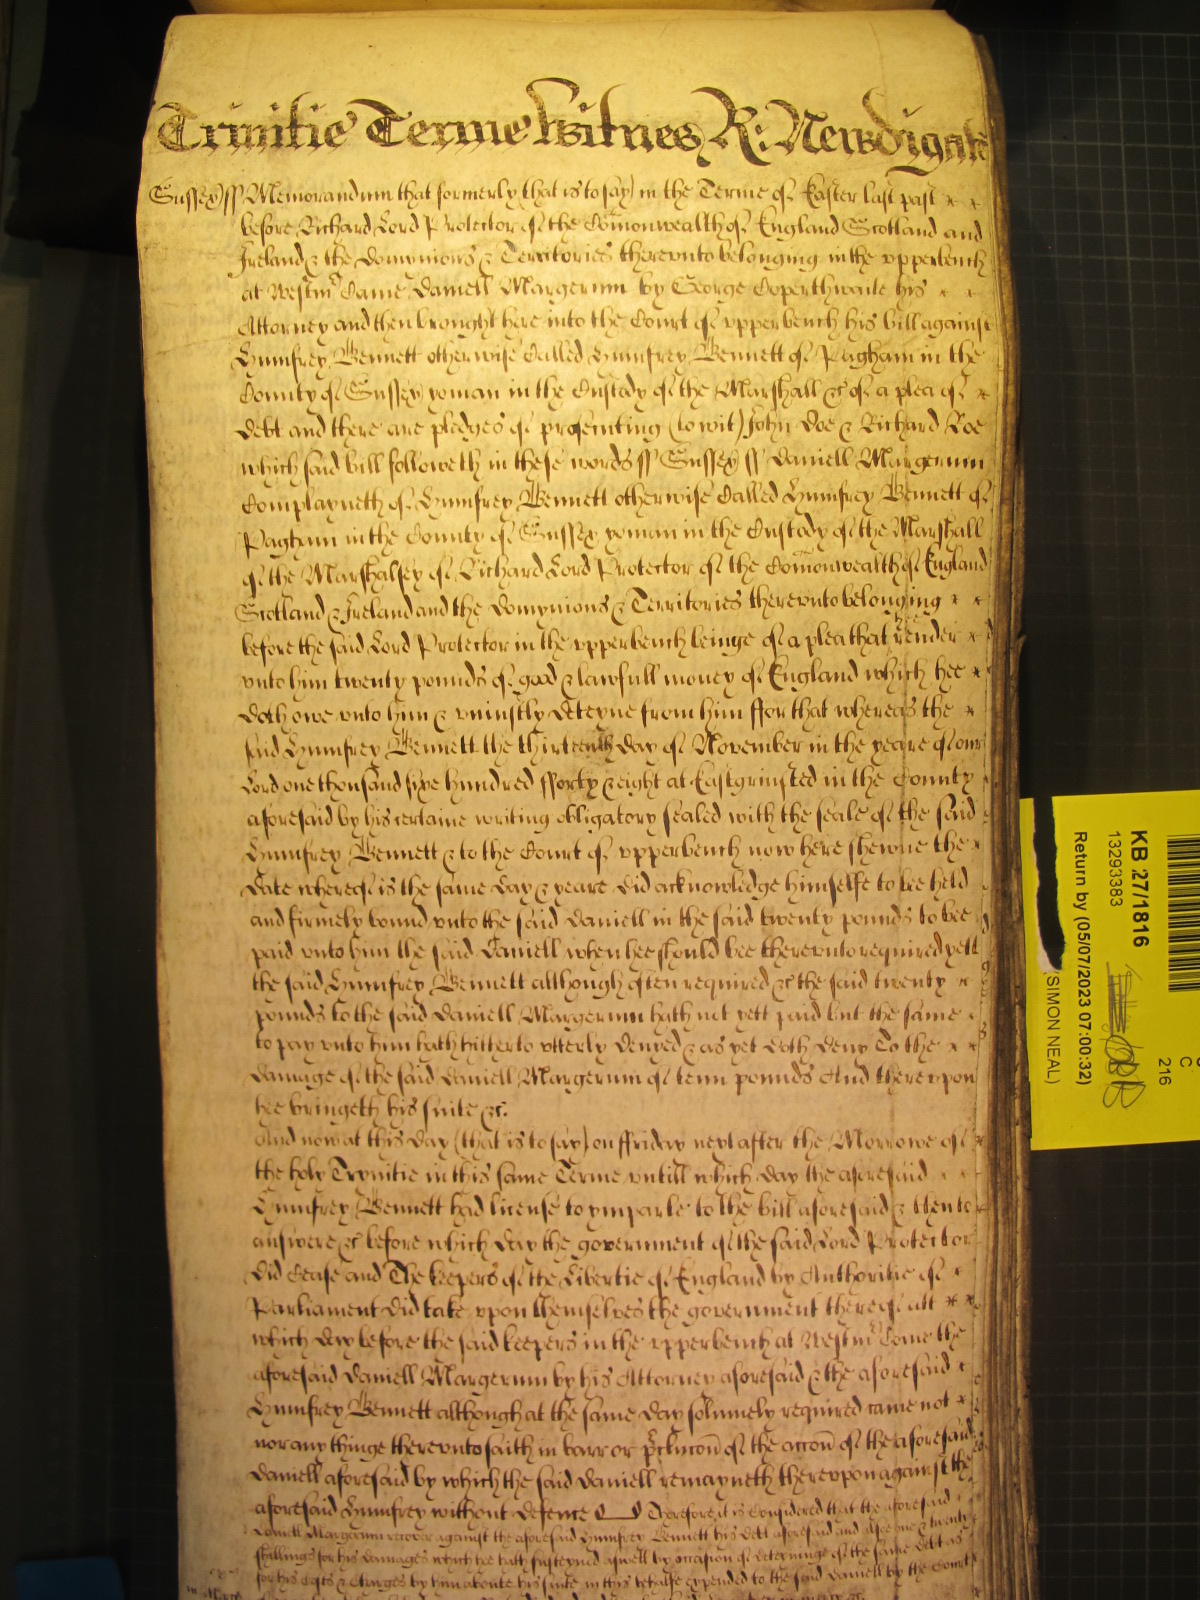 Trinitie Terme Witnes R: Newdigate
Sussex ss Memorandum that formerly that is to say in the Terme of Easter last past
before Richard Lord Protector of the Comonwealth of England Scotland and
Ireland & the Domynions & Territories thereunto belonging in the upperbench
at Westmr Came Daniell Margerum by George Coperthwaite his
Attorney and then brought here into the Court of upperbench his bill against
Humfrey Bennett otherwise Called Humfrey Bennett of Pagham in the
County of Sussex yoman in the Custody of the Marshall &c of a plea of
debt and there are pledges of prosecuting (to wit) John Doe & Richard Roe
which said bill followeth in these words ss Sussex ss Daniell Margerum
Complayneth of Humfrey Bennett otherwise Called Humfrey Bennett of
Paghum in the County of Sussex yoman in the Custody of the Marshall
of the Marshalsey of Richard Lord Protector of the Comonwealth of England
Scotland & Ireland and the Domynions & Territories thereunto belonging
before the said Lord Protector in the upperbench beinge of a plea that hee render
unto him twenty pounds of good & lawfull money of England which hee
doth owe unto him & uniustly deteyne from him ffor that whereas the
said Humfrey Bennett the thirteenth day of November in the yeare of our
Lord one thousand sixe hundred fforty & eight at Eastgrinsted in the County
aforesaid by his certaine writing obligatory sealed with the seale of the said
Humfrey Bennett & to the Court of upperbench now here shewne the
date whereof is the same day & yeare did acknowledge himselfe to bee held
and firmely bound unto the said Daniell in the said twenty pounds to bee
paid unto him the said Daniell when hee should bee thereunto required yett
the said Humfrey Bennett although often required &c the said twenty
pounds to the said Daniell Margerum hath not yett paid but the same
to pay unto him hath hitterto utterly denyed & as yet doth deny To the
damage of the said Daniell Margerum of tenn pounds And thereupon
hee bringeth his suite &c.
And now at this day (that is to say) on ffriday next after the Morrowe of
the holy Trynitie in this same Terme untill which day the aforesaid
Humfrey Bennett had license to ymparle to the bill aforesaid & then to
answere &c before which day the government of the said Lord Protector
did Cease and The keepers of the Libertie of England by Authoritie of
Parliament did take upon themselves the government thereof att
which day before the said keepers in the upperbench at Westmr Come the
aforesaid Daniell Margerum by his Attorney aforesaid & the aforesaid
Humfrey Bennett although at the same day solumely required came not
nor any thinge thereunto saith in barr or p'clucon of the accon of the aforesaid
Daniell aforesaid by which the said Daniell remayneth thereupon against the
aforesaid Humfrey without defence Therefore it is Considered that the aforesaid
Daniell Margerum recover against the aforesaid Humfrey Bennett his debt aforesaid and also one & twenty
shillings for his damages which hee hath susteyned aswell by occasion of deteyninge of the same debt as
for his Costs & Charges by him aboute his suite in this behalfe expended to the said Daniell by the Court
KB 27/1816
13293383
Return by (05/07/2023 07:00:32)
(SIMON NEAL)
C
216